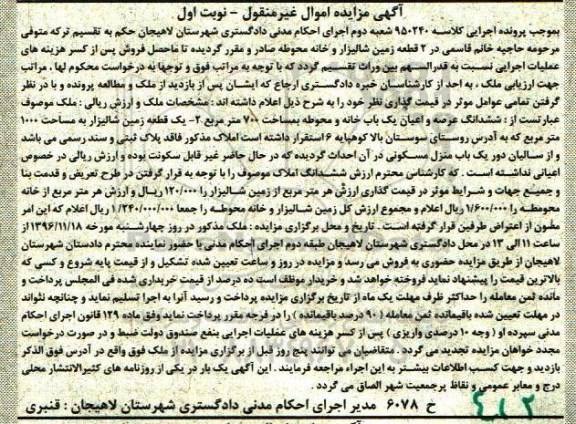 آگهی مزایده اموال غیرمنقول – نوبت اول
بموجب پرونده اجرایی کلاسه ۹۵۰۲۴۰ شعبه دوم اجرای احکام مدنی دادگستری شهرستان لاهیجان حکم به تقسیم ترکه متوفی
مرحومه حاجیه خانم قاسمی در ۲ قطعه زمین شالیزار و خانه محوطه صادر و مقرر گردیده تا ماحصل فروش پس از کسر هزینه های
عملیات اجرایی نسبت به قدرالسهم بین وراث تقسیم گردد که با توجه به مراتب فوق و توجها به درخواست محکوم لها . مراتب
جهت ارزیابی ملک ، به احد از کارشناسان خبره دادگستری ارجاع که ایشان پس از بازدید از ملک و مطالعه پرونده و با در نظر
گرفتن تمامی عوامل موثر در قیمت گذاری نظر خود را به شرح ذیل اعلام داشته اند: مشخصات ملک و ارزش ریالی : ملک موصوف
عبارتست از : ششدانگ عرصه و اعیان یک باب خانه و محوطه بمساحت ۷۰۰ متر مربع ۲- یک قطعه زمین شالیزار به مساحت ۱۰۰۰
متر مربع که به آدرس روستای سوستان بالا کوهپایه ۶ استقرار داشته است املاک مذکور فاقد پلاک ثبتی و سند رسمی می باشد
و از سالیان دور یک باب منزل مسکونی در آن احداث گردیده که در حال حاضر غیر قابل سکونت بوده و ارزش ریالی در خصوص
اعیانی نداشته است . که کارشناس محترم ارزش ششدانگ املاک موصوف را با توجه به قرار گرفتن در طرح تعریض و قدمت بنا
و جمیع جهات و شرایط موثر در قیمت گذاری ارزش هر متر مربع از زمین شالیزار را ۱۲۰/۰۰۰ ریال و ارزش هر متر مربع از خانه
محوطه را ۱/۶۰۰/۰۰۰ ریال اعلام و مجموع ارزش کل زمین شالیزار و خانه محوطه را جمعا ۱/۲۴۰/۰۰۰/۰۰۰ ریال اعلام که این امر
مصون از اعتراض طرفین قرار گرفته است . تاریخ و محل برگزاری مزایده : ملک مذکور در روز چهارشنبه مورخه ۱۳۹۶/۱۱/۱۸ از
ساعت ۱۱ الی ۱۳ در محل دادگستری شهرستان لاهیجان طبقه دوم اجرای احکام مدنی با حضور نماینده محترم دادستان شهرستان
لاهیجان از طریق مزایده حضوری به فروش می رسد و مزایده در روز و ساعت تعیین شده تشکیل و از قیمت پایه شروع و کسی که
بالاترین قیمت را پیشنهاد نماید فروخته خواهد شد و خریدار موظف است ده درصد از قیمت خریداری شده فی المجلس پرداخت و
مانده ثمن معامله را حداکثر ظرف مهلت یک ماه از تاریخ برگزاری مزایده پرداخت و رسید آنرا به اجرا تسلیم نماید و چنانچه نتواند
در مهلت تعیین شده باقیمانده ثمن معامله ( ۹۰ درصد باقیمانده ) را در فرجه مقرر پرداخت نماید وفق ماده ۱۲۹ قانون اجرای احکام
مدنی سپرده او ( وجه ۱۰ درصدی واریزی ) پس از کسر هزینه های عملیات اجرایی بنفع صندوق دولت ضبط و در صورت درخواست
مجدد خواهان مزایده تجدید می گردد . متقاضیان می توانند پنج روز قبل از برگزاری مزایده از ملک فوق واقع در آدرس فوق الذکر
بازدید و جهت کسب اطلاعات بیشتر به این اجراء مراجعه فرمایند . این آگهی یک بار در یکی از روزنامه های کثیرالانتشار محلی
درج و معابر عمومی و نقاط پرجمعیت شهر الصاق می گردد .
خ ۶۰۷۸ مدیر اجرای احکام مدنی دادگستری شهرستان لاهیجان : قنبری